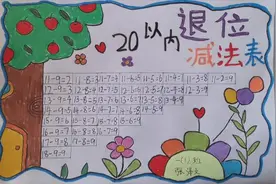 20以内
退位
减法表
11-9=2 11-8=3 11-7=4 11-6=5 11-5=6 11-4=7 11-3=8 11-2=9
12-9=3 12-8=4 12-7=5 12-6=6 12-5=7 12-4=8 12-3=9
13-9=4 13-8=5 13-7=6 13-6=7 13-5=8 13-4=9
14-9=5 14-8=6 14-7=7 14-6=8 14-5=9
15-9=6 15-8=7 15-7=8 15-6=9
16-9=7 16-8=8 16-7=9
17-9=8 17-8=9
18-9=9
一(1)班